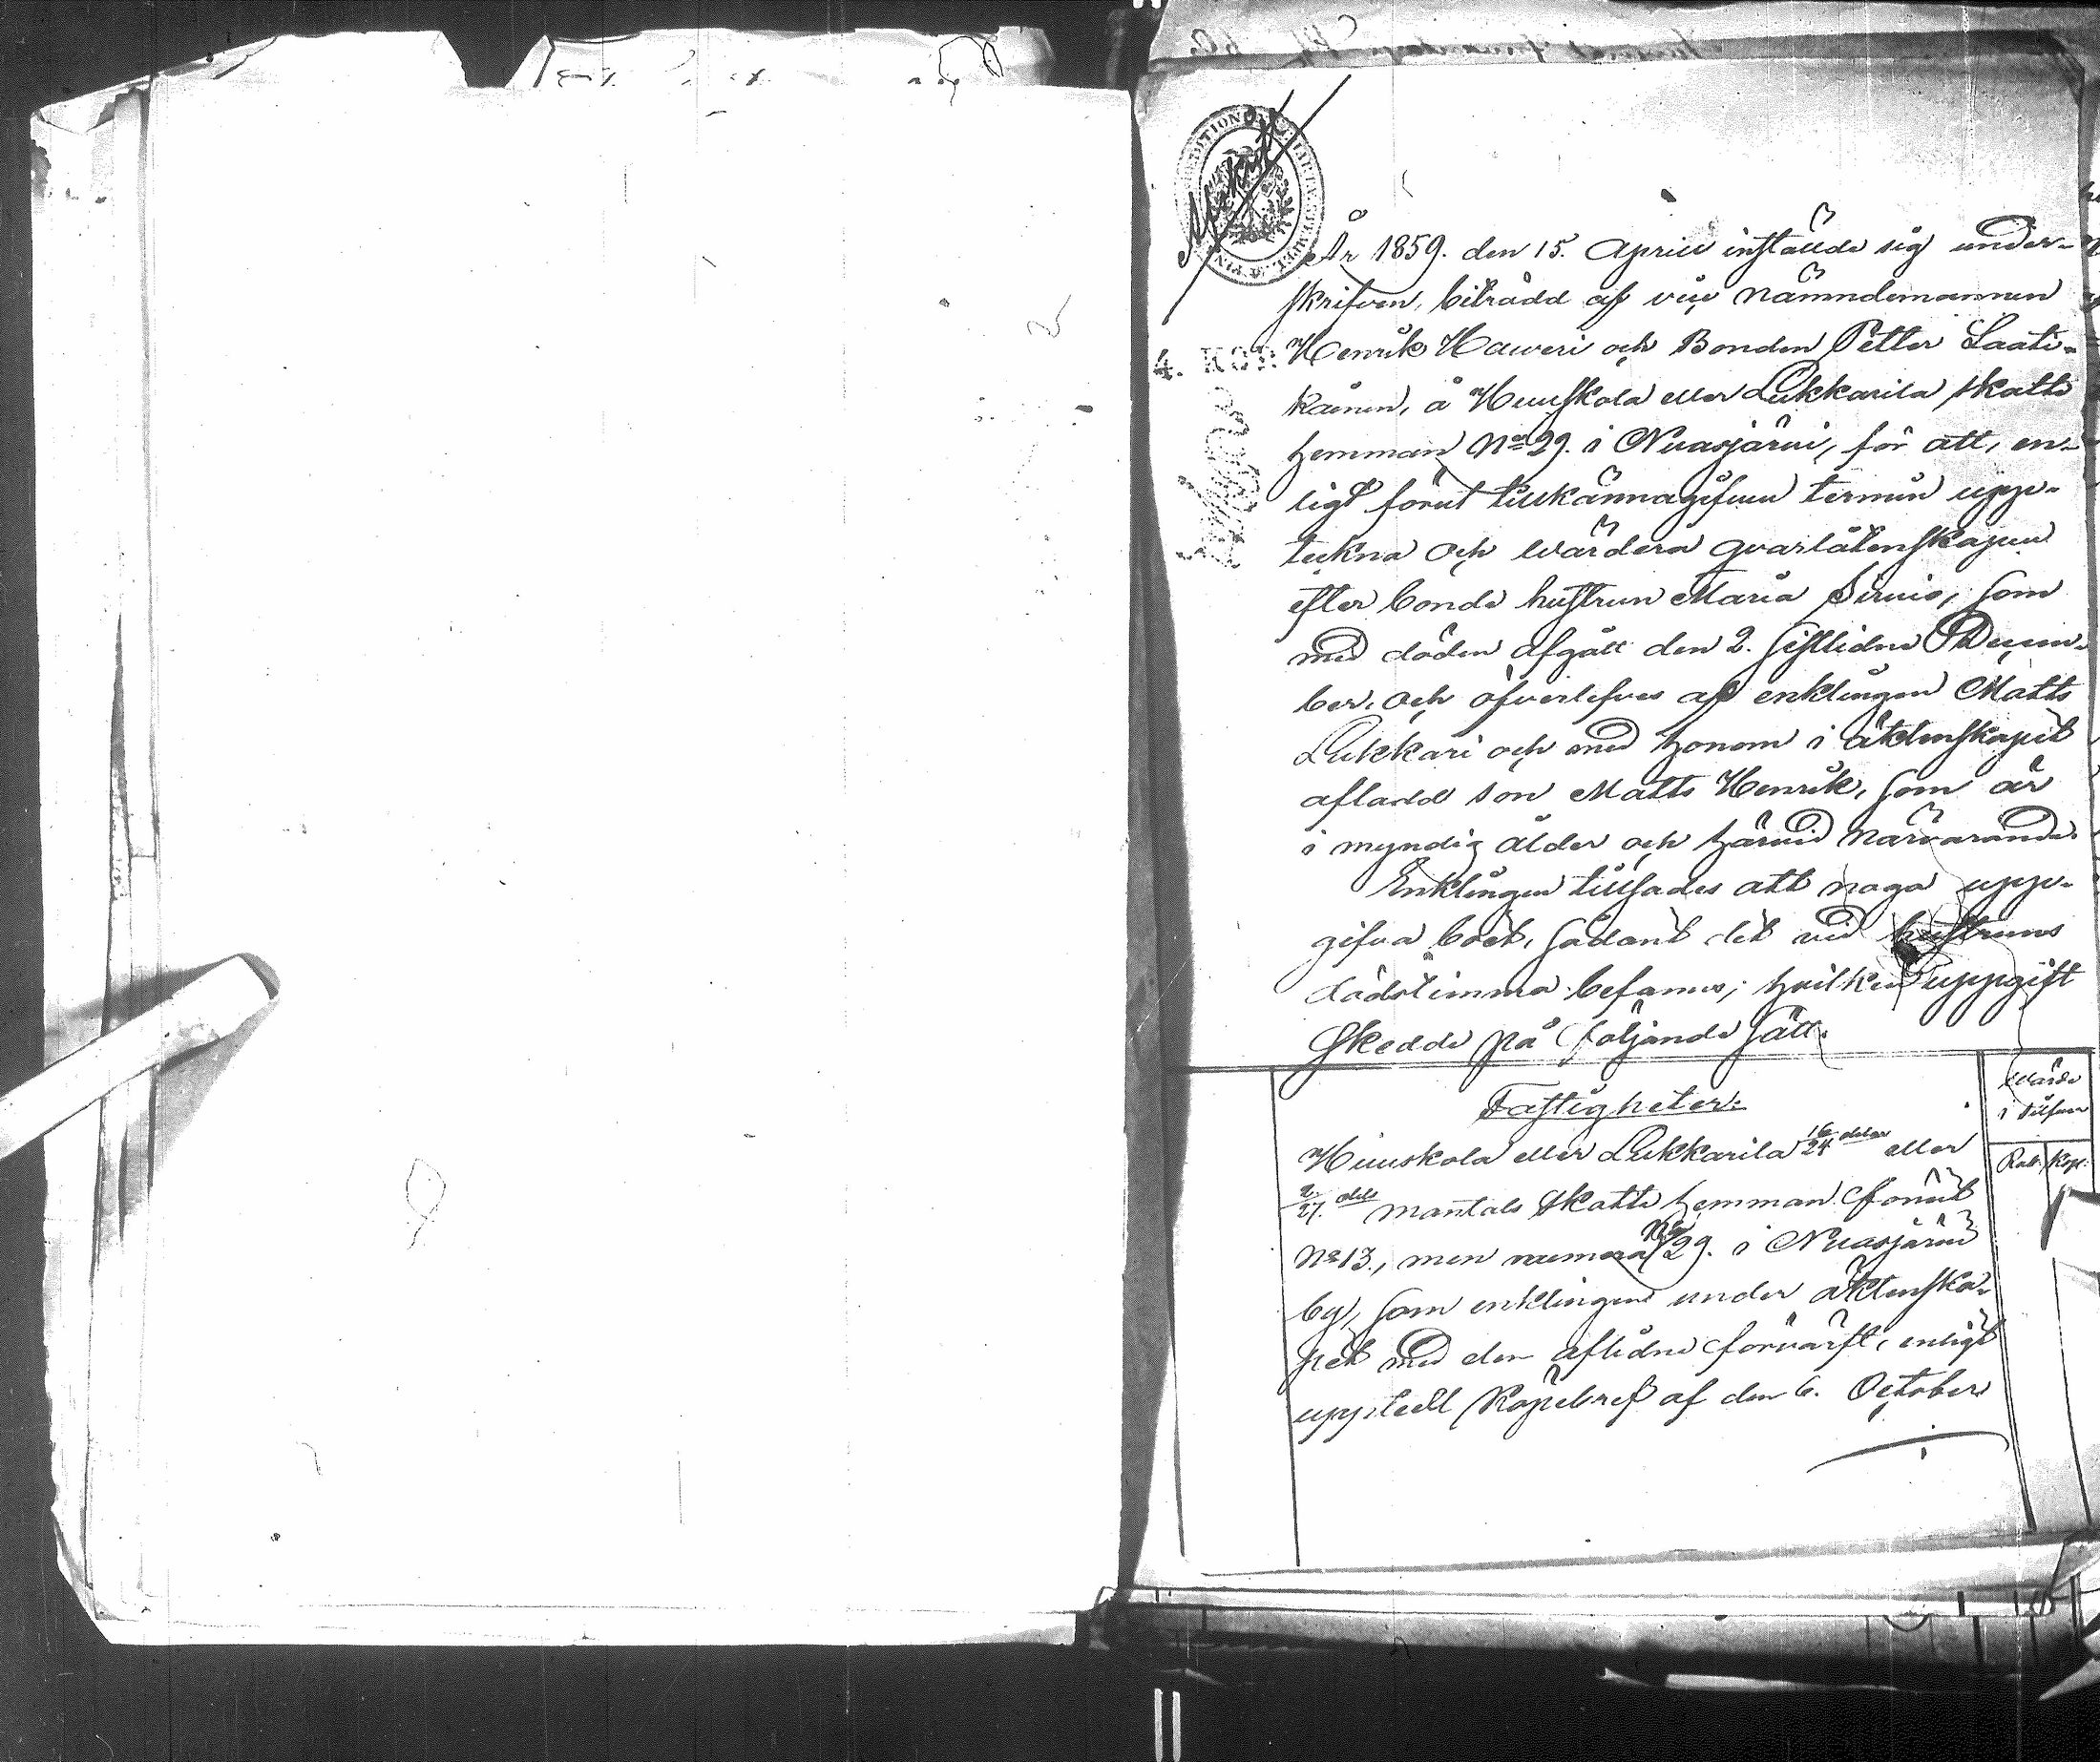 År 1859. den 15. April instälde sig under-
skrifven, biträdd af vice nämndemannen
4. KOP. Henrik Haveri och Bonden Petter Laati-
kainen, å Huuskola eller Lukkarila skatte
hemman No 29. i Nuasjärvi, för att, en-
ligt förut tillkännagifven termin upp-
tekna och wärdera qvarlåtenskapen
efter bonde hustrun Maria Sirvio, som
med döden afgått den 2. sistlidne Decem-
ber, och öfverlefves af enklingen Matts
Lukkari och med honom i äktenskapet
aflade son Matts Henrik, som är
i myndig ålder och härvid närvarande.
Enklingen tillsades att noga upp-
gifva boet, sådant det vid hustruns
dödstimma befanns; hvilken uppgift
skedde på följande sätt.
Wärde
i silfver
Rub. Kop.
Fastigheter:
Huuskola eller Lukkarila 16/24 delar eller
2/27. dels mantals skatte hemman förut
No 13., men numera No 29. i Nuasjärvi
by, som enklingen under äktenska-
pet med den aflidne förvärft, enligt
uppteedt Köpebref af den 6. October